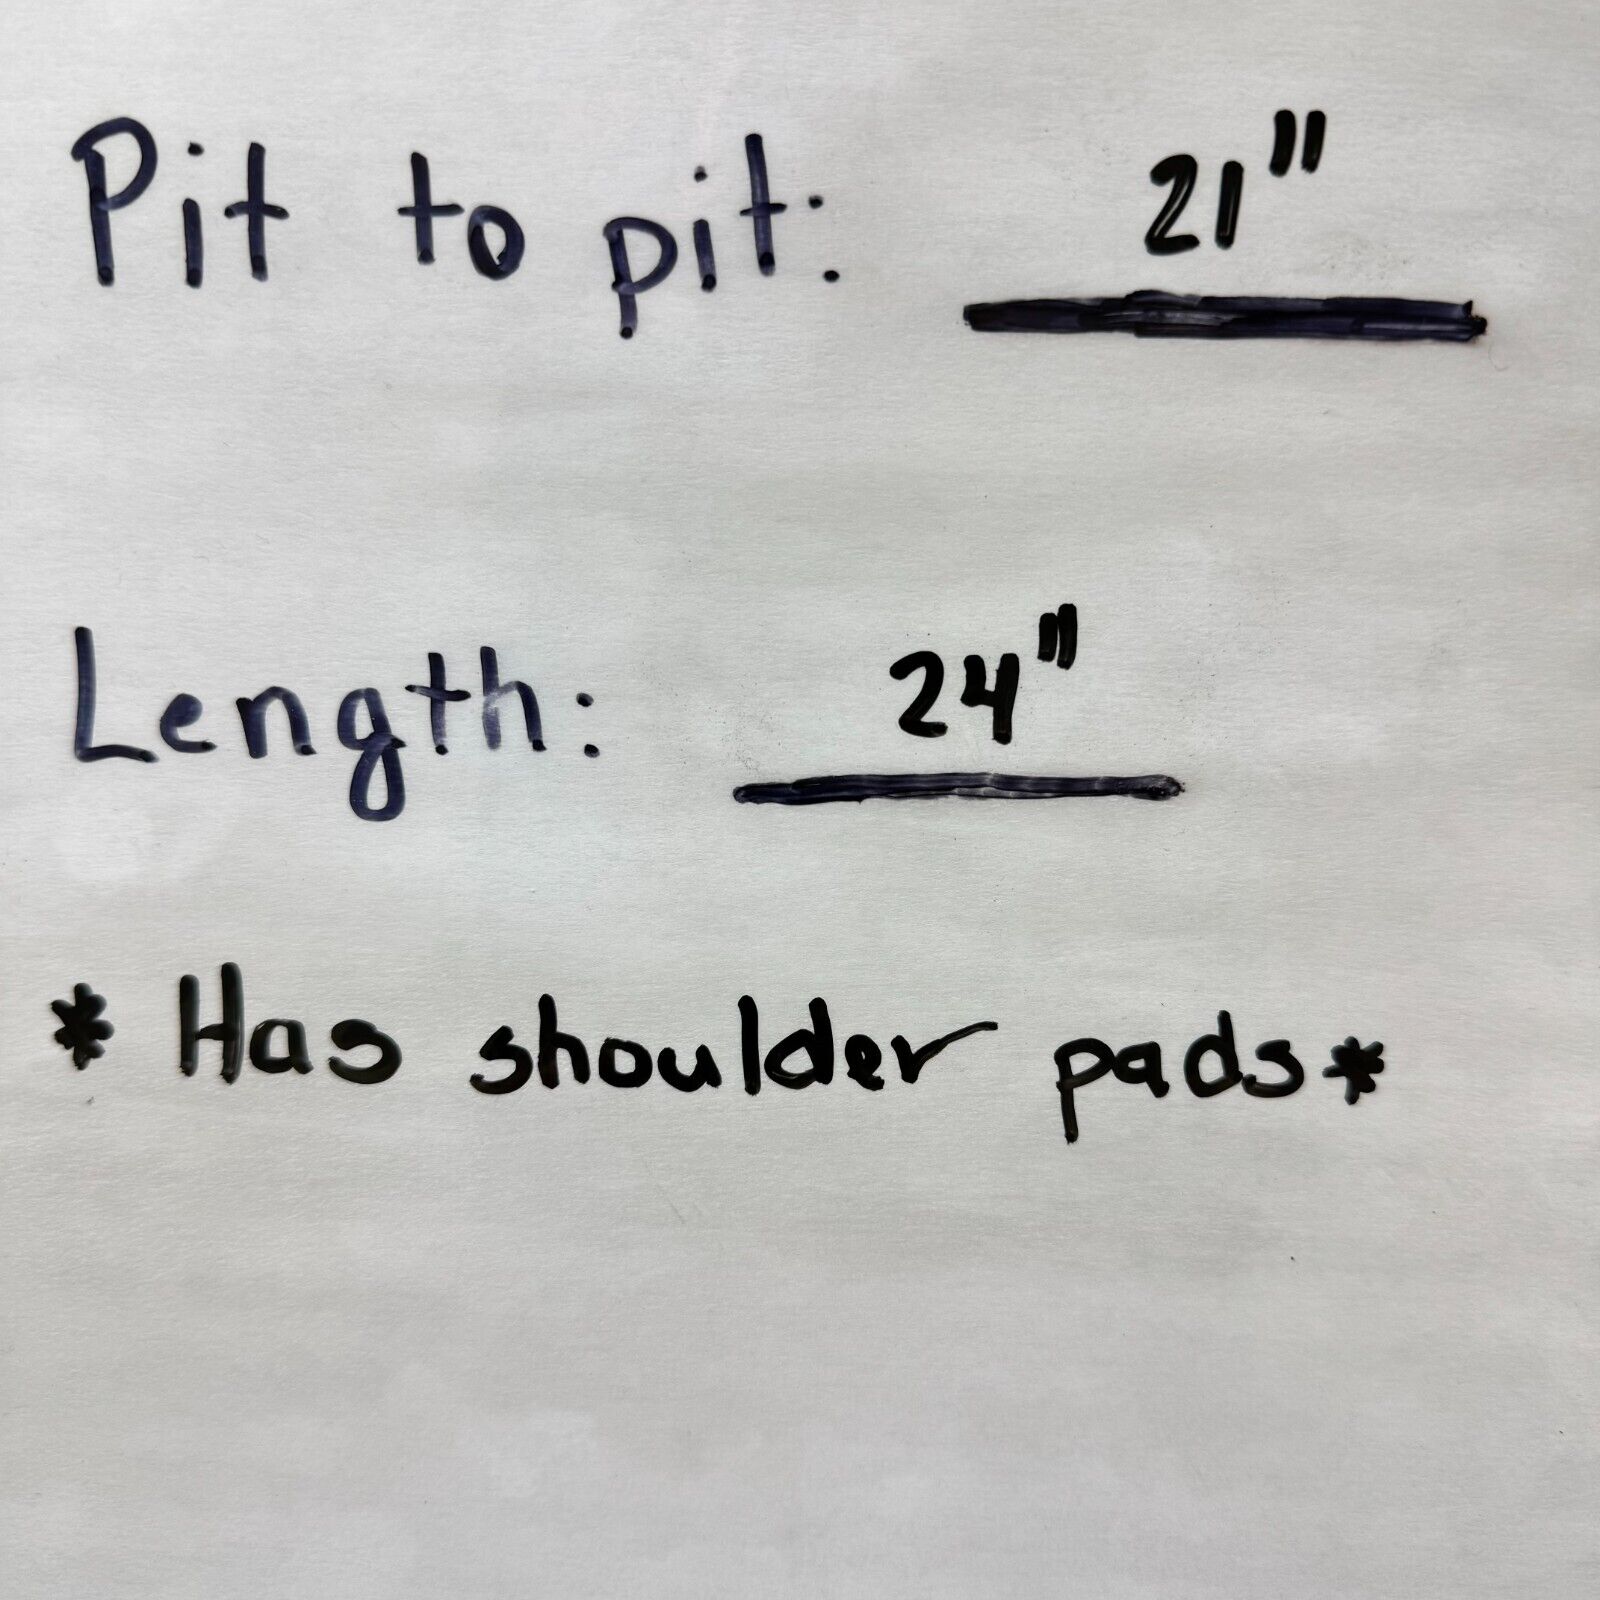 Pit to pit: 21"
Length: 24"
* Has shoulder pads *